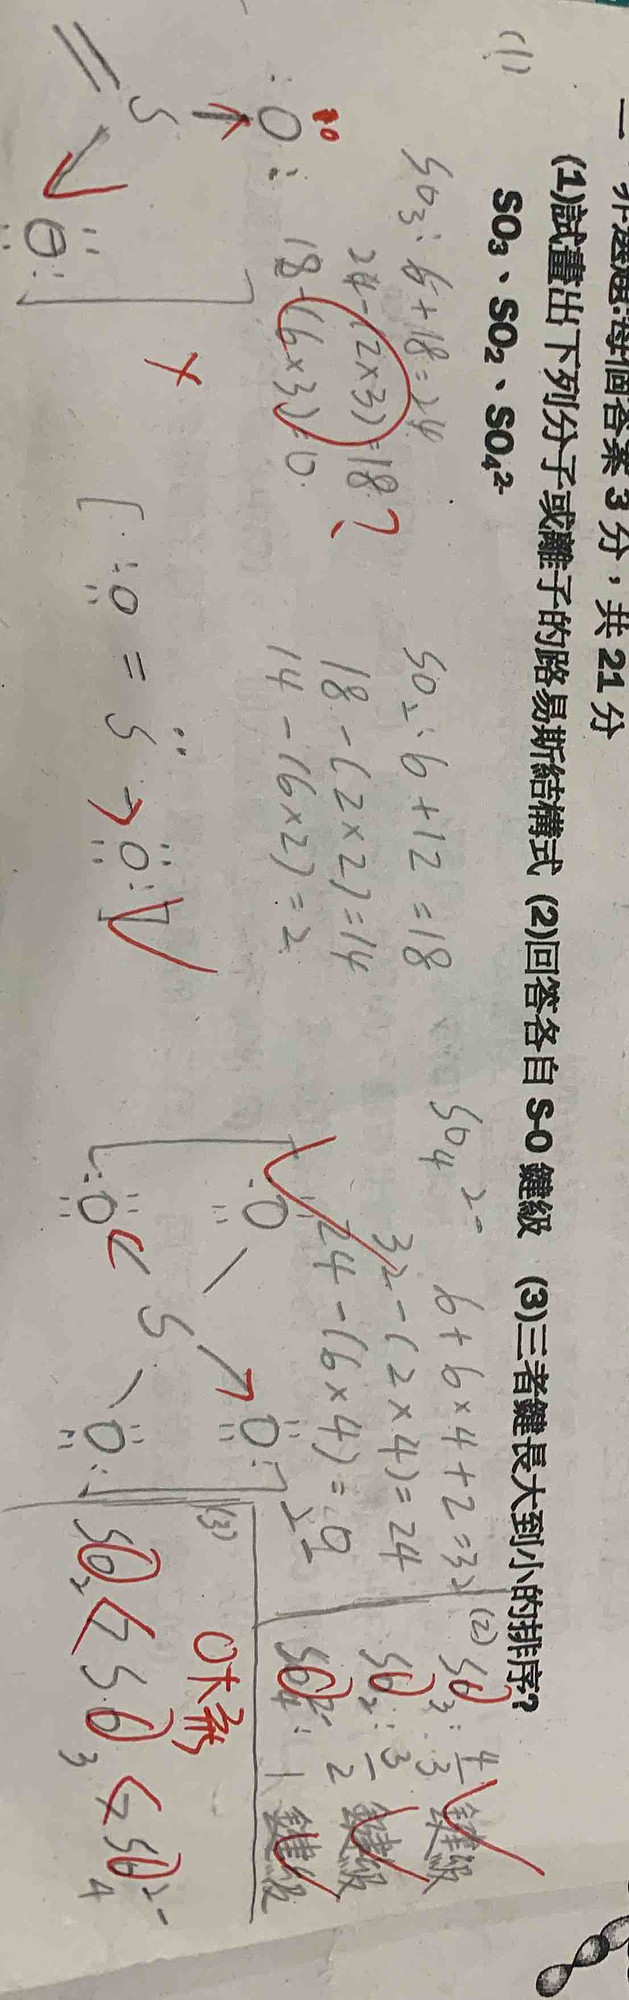 一 非選題:每個答案 3 分，共 21 分
(1)試畫出下列分子或離子的路易斯結構式 (2)回答各自 S-O 鍵級 (3)三者鍵長大到小的排序?
SO₃、SO₂、SO₄²⁻
(1)
SO₃: 6+18=24
24-(2×3)=18?
18-(6×3)=0
:O:
S
O:
SO₂: 6+12=18
18-(2×2)=14
14-(6×2)=2
[:O=S→O:]
SO₄²⁻
6+6×4+2=32
32-(2×4)=24
24-(6×4)=0
:O O:
S
:O O:
2-
(2) SO₃: 4/3 鍵級
SO₂: 3/2 鍵級
SO₄²⁻: 1 鍵級
(3)
SO₂<SO₃<SO₄²⁻